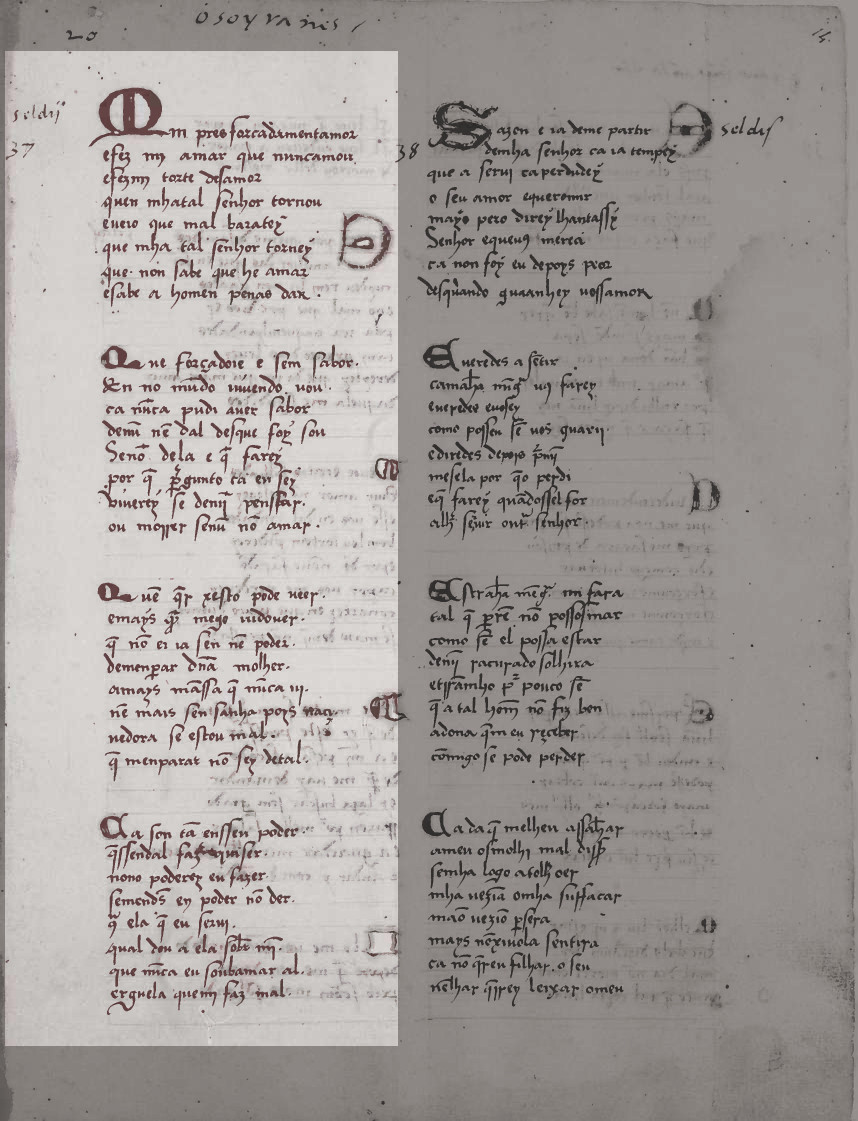 20
osoyranes
15
seldij
37
Min pres forcadamentamor
efez mi amar que nuncamou
efezmi torte desamor
quen mhatal senhor tornou
eueio que mal baratey
que mha tal senhor torney
que non sabe que he amar
esabe a homen penas dar.
Que forçadoie e sem sabor.
En no mũdo uiuendo uou.
ca nũca pudi auer sabor
demi nẽ dal desque foy sou
Senõ dela e q̃ farey
por q̃ pregunto cã en sey
viuerey se demi penssar.
ou morrer senõ nõ amar.
Quẽ q̃r xesto pode ueer.
emays q̃ mego uidouer.
q̃ nõ ei ia sen nẽ poder.
demenparar dũa molher.
amays mãssa q̃ nũca ui.
nẽ mais sen sanha poys naçi.
uedora se estou mal.
q̃ menparar nõ sey detal.
Ca son tã enssen poder.
q̃ssendal faz uiuiser.
nono poderey eu fazer.
semends en poder nõ der.
q̃ ela q̃ eu serui.
qual dou a ela sobr mĩ.
que nũca eu soubamar al.
erguela quemi faz mal.
38
seldiſ
Sazon e ia deme partir
demha senhor ca ia tempey
que a serui ca perdudey
o seu amor equeromir
mayo pero direy lhantassy
Senhor equeu9 mereci
ca non foy eu depoys peor
desquando guaanhey uossamor
Eueredes a sẽtir
camãha mĩgua u9 farey
eueredes euosey
como possou sẽ uos guarir
ediredes depois pmi
mesela por q̃o perdi
eq̃ farey quãdossel for
alh seruir outr senhor
Estraha meq̃ mi fara
tal q̃ p̃rẽ nõ possosmar
como sẽ el possa estar
demi racurado solhira
etrramho p̃ pouco sẽ
q̃ a tal homẽ nõ fiz ben
adona q̃m eu receber
comigo sẽ pode perder
Ca da q̃ melheu assãhar
ameu osmolhi mal disser
semha logo atolhoer
mha uezia omha suffacar
mao uezio p̃sera
mays nõxiuola sentira
ca nõ q̃reu filhar o seu
nelhar q̃rrey leixar omeu